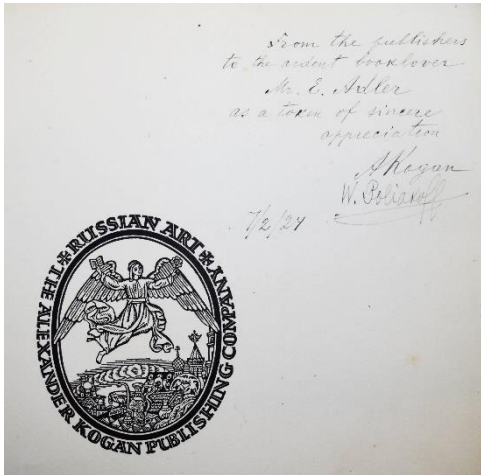 From the publishers
to the ardent booklover
Mr. E. Adler
as a token of sincere
appreciation
AKogan
W. Poliakoff
7/2/24
* RUSSIAN ART *
THE ALEXANDER KOGAN PUBLISHING COMPANY